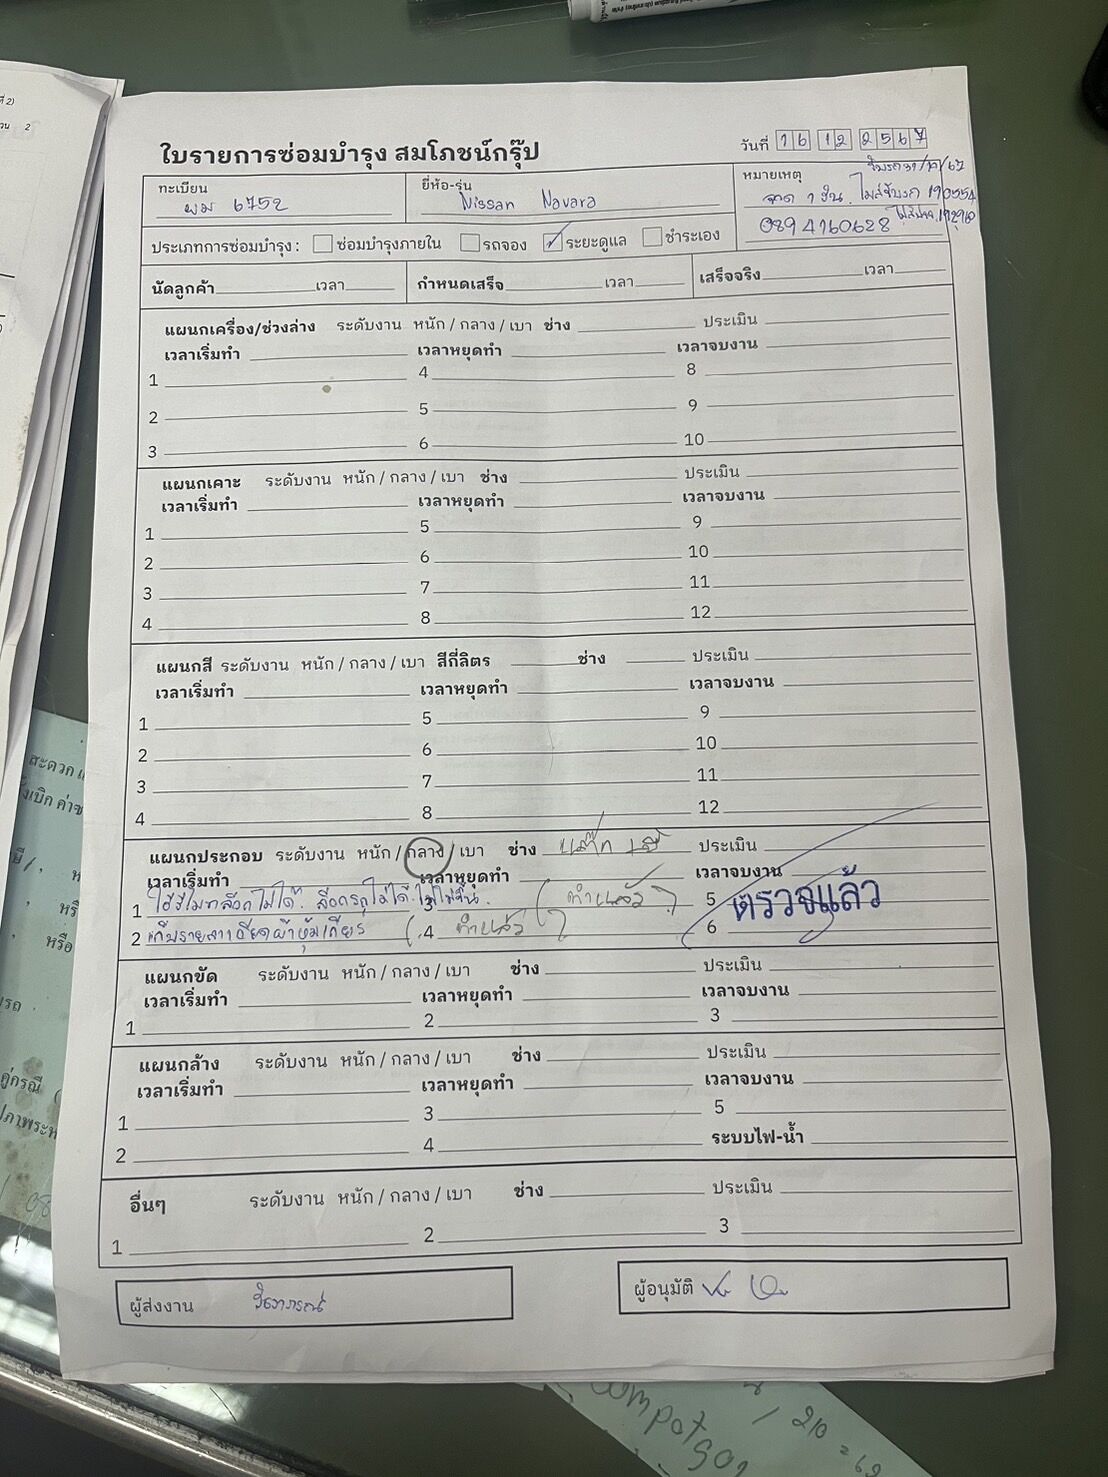 ใบรายการซ่อมบำรุง สมโภชน์กรุ๊ป
วันที่ 16 12 2567
ทะเบียน
ผม 6752
ยี่ห้อ-รุ่น
Nissan Navara
หมายเหตุ
รับรถ 31/12/67
จอด 1 วัน. ไมล์รับรถ 190554
0894160628
ประเภทการซ่อมบำรุง : ซ่อมบำรุงภายใน รถจอง ระยะดูแล ชำระเอง
นัดลูกค้า เวลา กำหนดเสร็จ เวลา เสร็จจริง เวลา
แผนกเครื่อง/ช่วงล่าง ระดับงาน หนัก / กลาง / เบา ช่าง ประเมิน
เวลาเริ่มทำ เวลาหยุดทำ เวลาจบงาน
1 4 8
2 5 9
3 6 10
แผนกเคาะ ระดับงาน หนัก / กลาง / เบา ช่าง ประเมิน
เวลาเริ่มทำ เวลาหยุดทำ เวลาจบงาน
1 5 9
2 6 10
3 7 11
4 8 12
แผนกสี ระดับงาน หนัก / กลาง / เบา สีกี่ลิตร ช่าง ประเมิน
เวลาเริ่มทำ เวลาหยุดทำ เวลาจบงาน
1 5 9
2 6 10
3 7 11
4 8 12
แผนกประกอบ ระดับงาน หนัก / กลาง / เบา ช่าง ประเมิน
เวลาเริ่มทำ เวลาหยุดทำ เวลาจบงาน
1 ใช้รีโมทล็อกไม่ได้. ล็อกรถไม่ได้. 3 (ทำแล้ว) 5 ตรวจแล้ว
2 เก็บรายละเอียดผ้าหุ้มเกียร์ ( 4 ทำแล้ว ) 6
แผนกขัด ระดับงาน หนัก / กลาง / เบา ช่าง ประเมิน
เวลาเริ่มทำ เวลาหยุดทำ เวลาจบงาน
1 2 3
แผนกล้าง ระดับงาน หนัก / กลาง / เบา ช่าง ประเมิน
เวลาเริ่มทำ เวลาหยุดทำ เวลาจบงาน
1 3 5
2 4 ระบบไฟ-น้ำ
อื่นๆ ระดับงาน หนัก / กลาง / เบา ช่าง ประเมิน
1 2 3
ผู้ส่งงาน
ผู้อนุมัติ